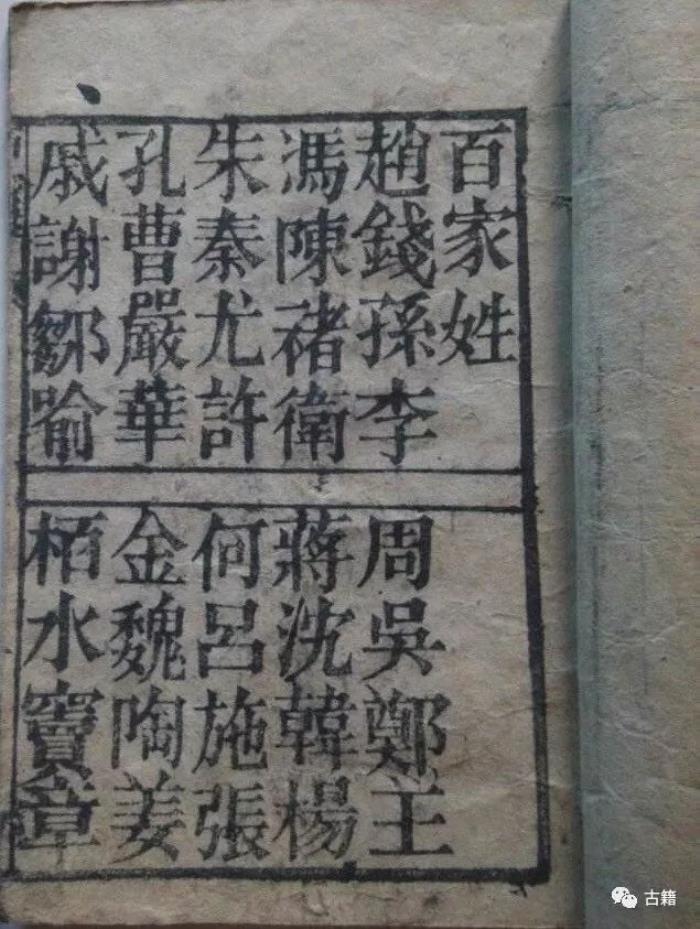 百家姓
趙錢孫李
周吳鄭主
馮陳褚衛
蔣沈韓楊
朱秦尤許
何呂施張
孔曹嚴華
金魏陶姜
戚謝鄒喻
栢水竇章
古籍